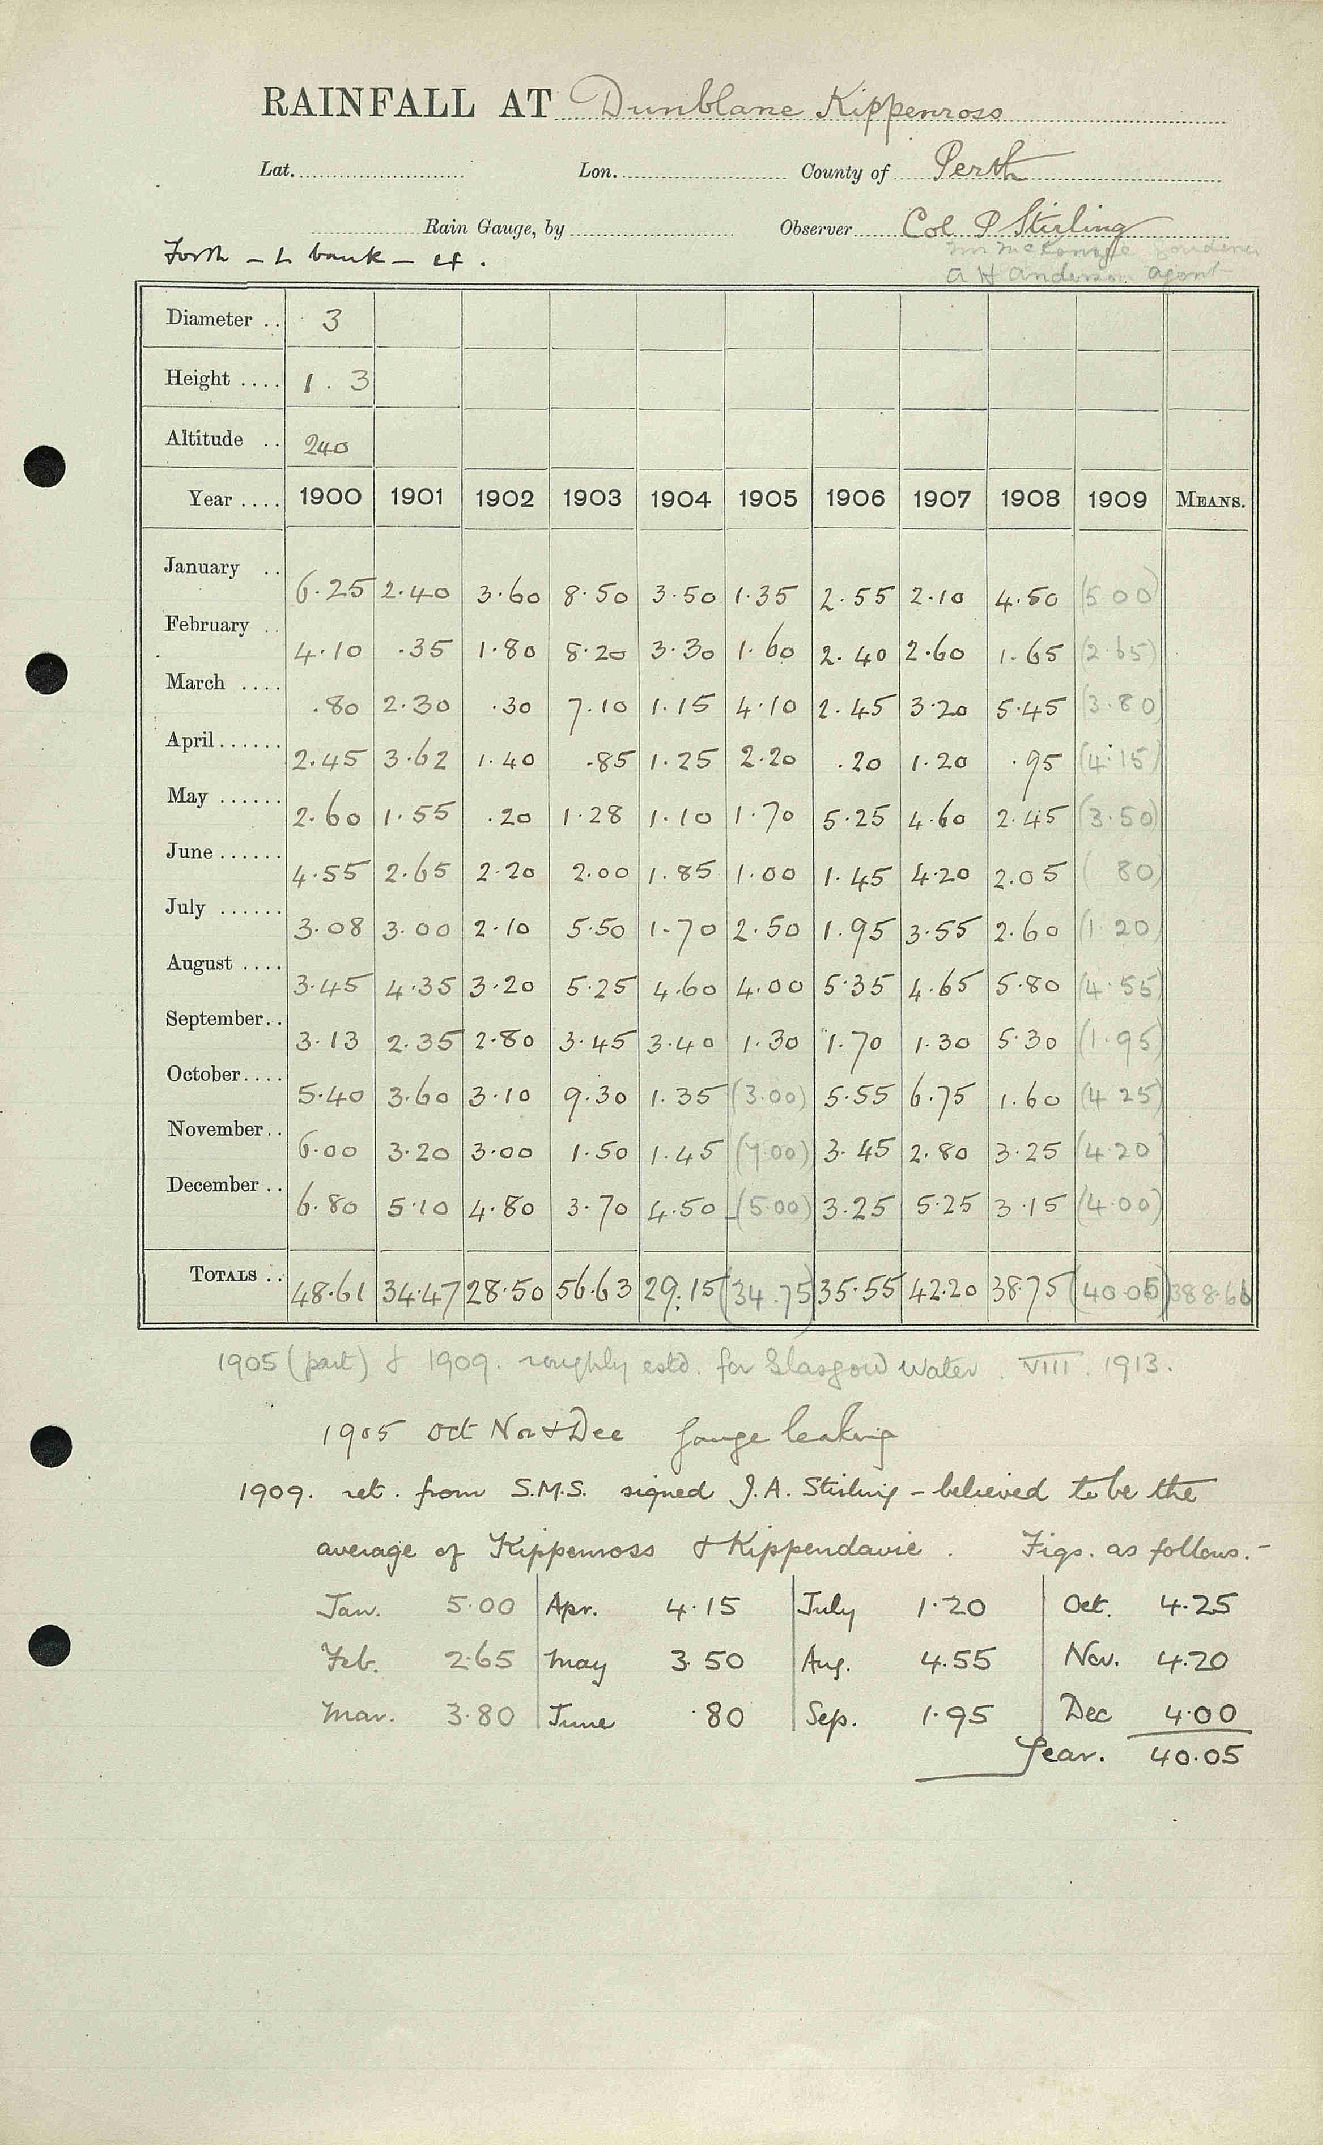 RAINFALL AT Dunblane Kippenross
Lat. Lon. County of Perth
Rain Gauge, by Observer Col P Stirling
Forth - L bank - ef.
A H Anderson agent
Diameter .. 3
Height .... 1.3
Altitude .. 240
Year .... 1900 1901 1902 1903 1904 1905 1906 1907 1908 1909 MEANS.
January .. 6.25 2.40 3.60 8.50 3.50 1.35 2.55 2.10 4.50 (5 00)
February .. 4.10 .35 1.80 8.20 3.30 1.60 2.40 2.60 1.65 (2.65)
March .... .80 2.30 .30 7.10 1.15 4.10 2.45 3.20 5.45 (3.80)
April ...... 2.45 3.62 1.40 .85 1.25 2.20 .20 1.20 .95 (4.15)
May ...... 2.60 1.55 .20 1.28 1.10 1.70 5.25 4.60 2.45 (3.50)
June ...... 4.55 2.65 2.20 2.00 1.85 1.00 1.45 4.20 2.05 ( 80)
July ...... 3.08 3.00 2.10 5.50 1.70 2.50 1.95 3.55 2.60 (1.20)
August .... 3.45 4.35 3.20 5.25 4.60 4.00 5.35 4.65 5.80 (4.55)
September.. 3.13 2.35 2.80 3.45 3.40 1.30 1.70 1.30 5.30 (1.95)
October.... 5.40 3.60 3.10 9.30 1.35 (3.00) 5.55 6.75 1.60 (4 25)
November.. 6.00 3.20 3.00 1.50 1.45 (7.00) 3.45 2.80 3.25 (4.20)
December .. 6.80 5.10 4.80 3.70 4.50 (5.00) 3.25 5.25 3.15 (4.00)
TOTALS .. 48.61 34.47 28.50 56.63 29.15 (34.75) 35.55 42.20 38.75 (40.05) 388.66
1905 (part) & 1909. roughly estd. for Glasgow Water. VIII. 1913.
1905 Oct Nov & Dec Gauge leaking
1909. ret. from S.M.S. signed J.A. Stirling - believed to be the
average of Kippenross & Kippendavie. Figs. as follows. -
Jan. 5.00 Apr. 4.15 July 1.20 Oct. 4.25
Feb. 2.65 May 3.50 Aug. 4.55 Nov. 4.20
Mar. 3.80 June .80 Sep. 1.95 Dec 4.00
Year. 40.05